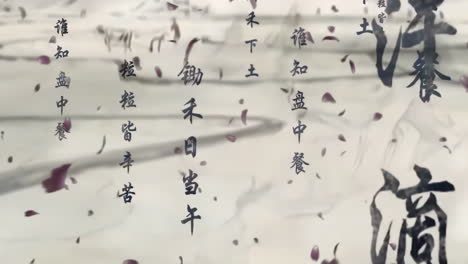 餐
滴
土
谁知盘中餐
禾下土
锄禾日当午
粒粒皆辛苦
谁知盘中餐